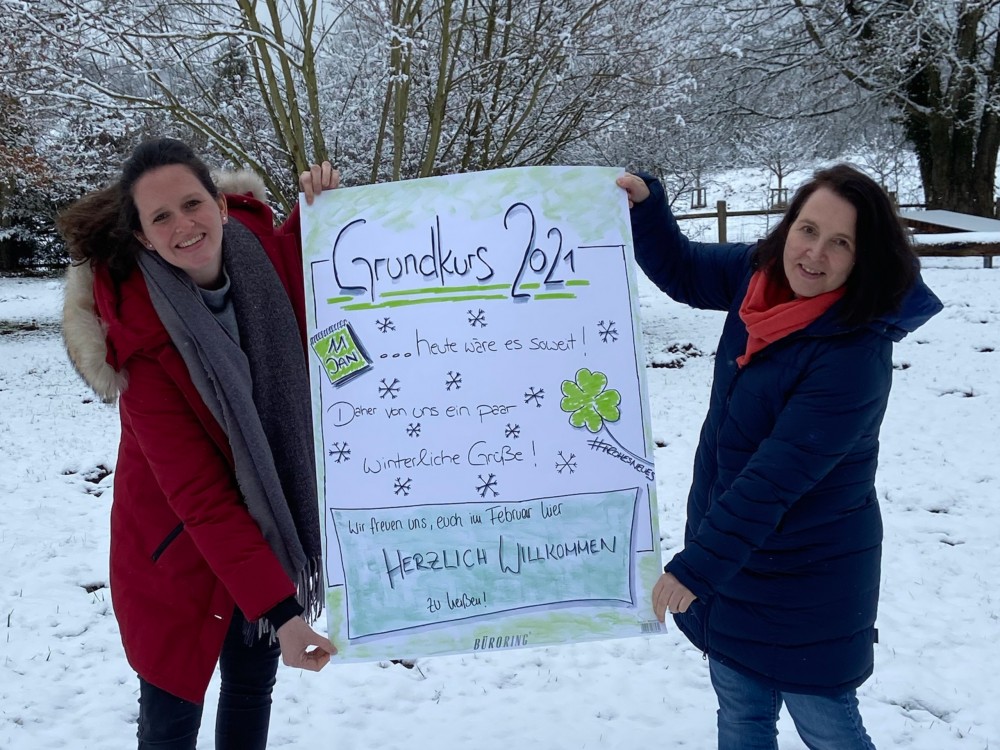 Grundkurs 2021
11
JAN
...heute wäre es soweit!
Daher von uns ein paar
winterliche Grüße!
#FROHESNEUES
Wir freuen uns, euch im Februar hier
HERZLICH WILLKOMMEN
zu heißen!
BÜRORING